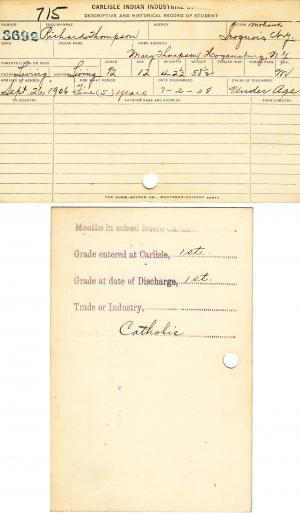 715
CARLISLE INDIAN INDUSTRIAL
DESCRIPTIVE AND HISTORICAL RECORD OF STUDENT
NUMBER ENGLISH NAME AGENCY NATION Mohawk
3692 Richard Thompson Iroquois Cty.
INDIAN NAME HOME ADDRESS
Mary Thompson, Hogansburg, N.Y.
PARENTS LIVING OR DEAD BLOOD AGE HEIGHT WEIGHT FORCED INSP. FORCED EXPR. SEX
FATHER Living MOTHER Living 1/2 12 4-2 1/2 58 1/2 M
ARRIVED AT SCHOOL FOR WHAT PERIOD DATE DISCHARGED CAUSE OF DISCHARGE
Sept. 26, 1906 Five (5) years 7-2-08 Under Age
TO COUNTRY PATRONS NAME AND ADDRESS FROM COUNTRY
THE SHAW-WALKER CO., MUSKEGON
Months in school before Carlisle,
Grade entered at Carlisle, 1st.
Grade at date of Discharge, 1st.
Trade or Industry,
Catholic